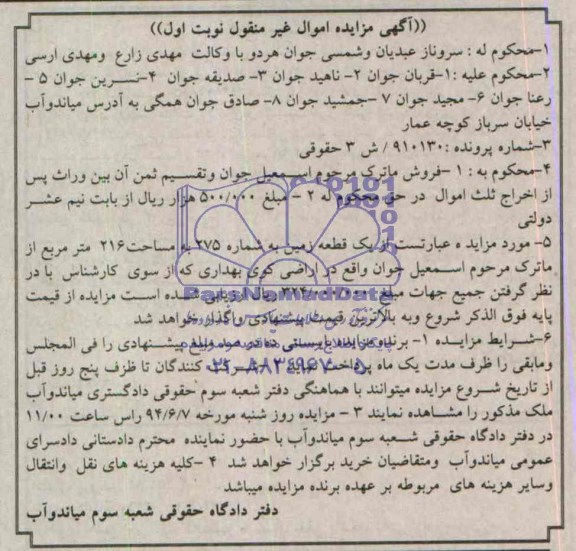 ((آگهی مزایده اموال غیر منقول نوبت اول))
۱-محکوم له : سروناز عبدیان وشمسی جوان هردو با وکالت مهدی زارع ومهدی ارسی
۲-محکوم علیه :۱-قربان جوان ۲- ناهید جوان ۳- صدیقه جوان ۴-نسرین جوان ۵ -
رعنا جوان ۶- مجید جوان ۷ -جمشید جوان ۸- صادق جوان همگی به آدرس میاندوآب
خیابان سرباز کوچه عمار
۳-شماره پرونده :۹۱۰۱۳۰ / ش ۳ حقوقی
۴-محکوم به : ۱ -فروش ماترک مرحوم اسمعیل جوان وتقسیم ثمن آن بین وراث پس
از اخراج ثلث اموال در حق محکوم له ۲ - مبلغ ۵۰۰/۰۰۰ هزار ریال از بابت نیم عشر
دولتی
۵- مورد مزاید ه عبارتست از یک قطعه زمین به شماره ۲۷۵ به مساحت۲۱۶ متر مربع از
ماترک مرحوم اسمعیل جوان واقع در اراضی کوی بهداری که از سوی کارشناس با در
نظر گرفتن جمیع جهات مبلغ ریال ارزیابی شده است مزایده از قیمت
پایه فوق الذکر شروع وبه بالاترین قیمت پیشنهادی واگذار خواهد شد
۶-شرایط مزایده ۱- برنده مزایده بایستی ده درصد مبلغ پیشنهادی را فی المجلس
ومابقی را ظرف مدت یک ماه پرداخت نماید کنندگان تا ظرف پنج روز قبل
از تاریخ شروع مزایده میتوانند با هماهنگی دفتر شعبه سوم حقوقی دادگستری میاندوآب
ملک مذکور را مشاهده نمایند ۳ - مزایده روز شنبه مورخه ۹۴/۶/۷ راس ساعت ۱۱/۰۰
در دفتر دادگاه حقوقی شعبه سوم میاندوآب با حضور نماینده محترم دادستانی دادسرای
عمومی میاندوآب ومتقاضیان خرید برگزار خواهد شد ۴ -کلیه هزینه های نقل وانتقال
وسایر هزینه های مربوطه بر عهده برنده مزایده میباشد
دفتر دادگاه حقوقی شعبه سوم میاندوآب
ParsNamadData
۰۲۱-۸۸۳۴۹۶۷۰-۵